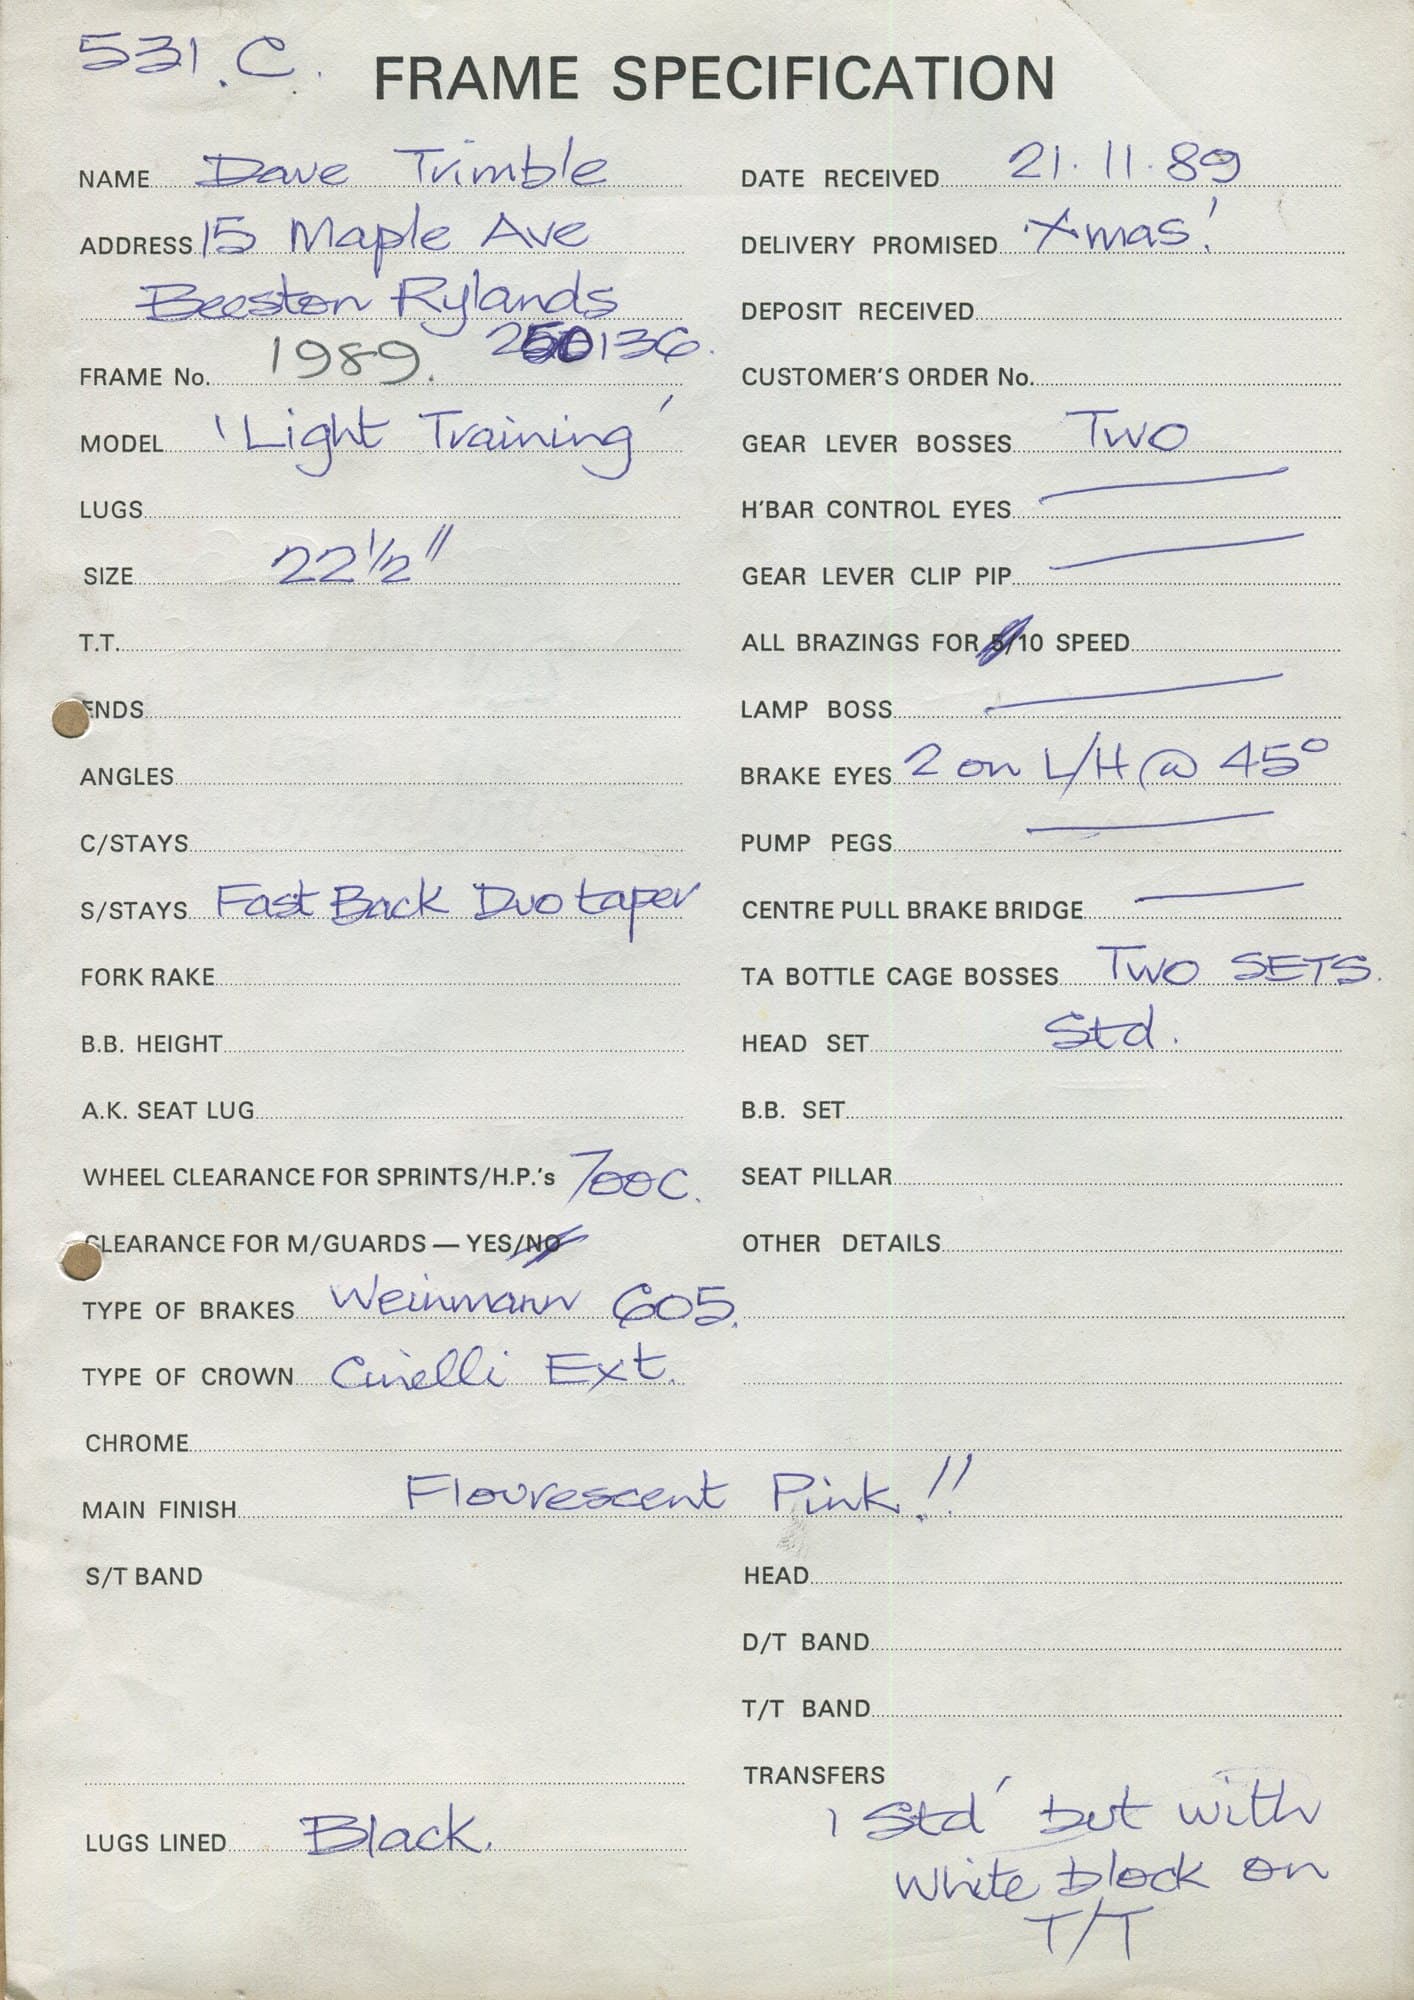 531.C.
FRAME SPECIFICATION
NAME Dave Trimble
ADDRESS 15 Maple Ave
Beeston Rylands
FRAME No. 1989. 250136.
MODEL 'Light Training'
LUGS
SIZE 22 1/2"
T.T.
ENDS
ANGLES
C/STAYS
S/STAYS Fast Back Duo taper
FORK RAKE
B.B. HEIGHT
A.K. SEAT LUG
WHEEL CLEARANCE FOR SPRINTS/H.P.'s 700C.
CLEARANCE FOR M/GUARDS — YES/NO
TYPE OF BRAKES Weinmann 605.
TYPE OF CROWN Cinelli Ext.
DATE RECEIVED 21.11.89
DELIVERY PROMISED 'Xmas'!
DEPOSIT RECEIVED
CUSTOMER'S ORDER No.
GEAR LEVER BOSSES Two
H'BAR CONTROL EYES
GEAR LEVER CLIP PIP
ALL BRAZINGS FOR 5/10 SPEED
LAMP BOSS
BRAKE EYES 2 on L/H @ 45°
PUMP PEGS
CENTRE PULL BRAKE BRIDGE
TA BOTTLE CAGE BOSSES Two SETS.
HEAD SET Std.
B.B. SET
SEAT PILLAR
OTHER DETAILS
CHROME
MAIN FINISH Flourescent Pink!!
S/T BAND
LUGS LINED Black.
HEAD
D/T BAND
T/T BAND
TRANSFERS
'Std' but with
white block on
T/T